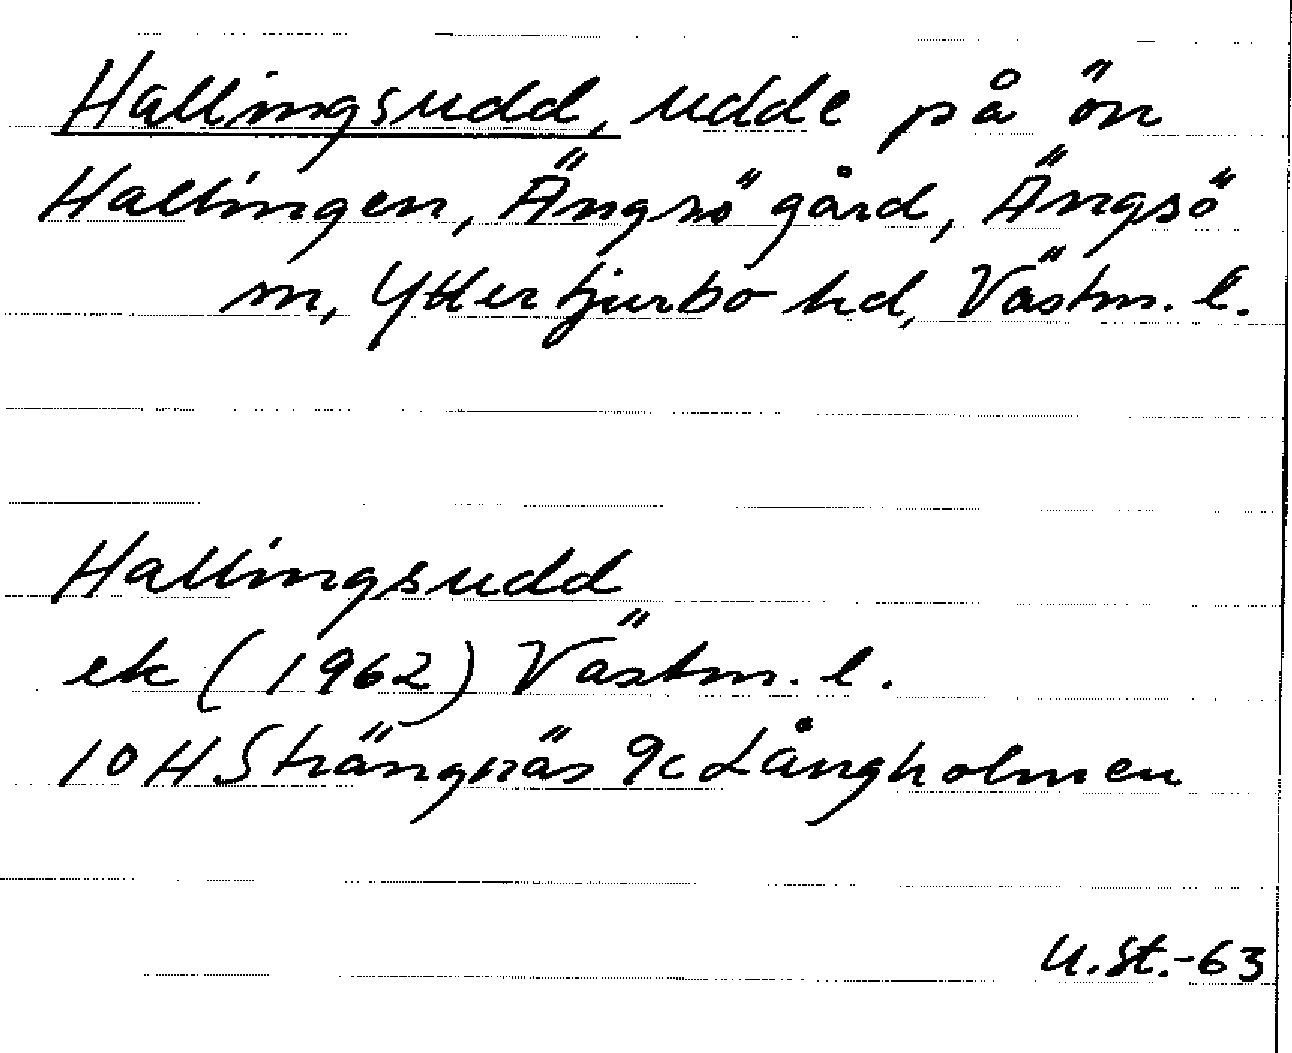 Hallingsudd, udde på ön
Hallingen, Ängsö gård, Ängsö
sn, Yttertjurbo hd, Västm. l.
Hallingsudd
ek (1962) Västm. l.
10H Strängnäs 9c Långholmen
U.St.-63